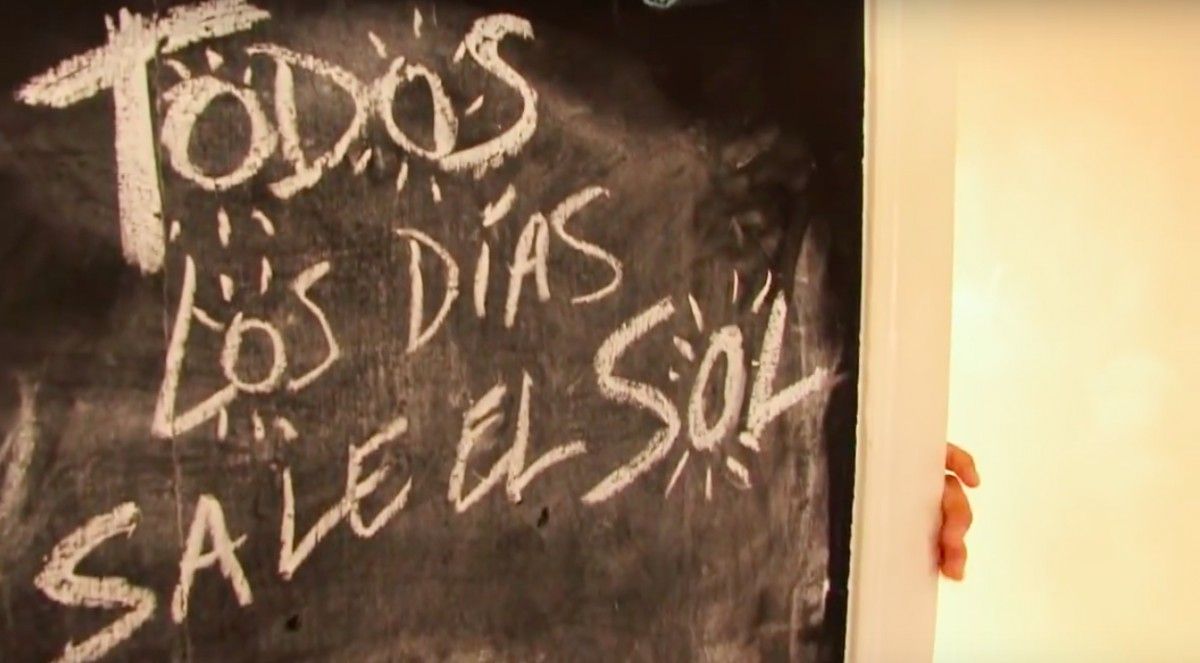 TODOS
LOS DÍAS
SALE EL SOL